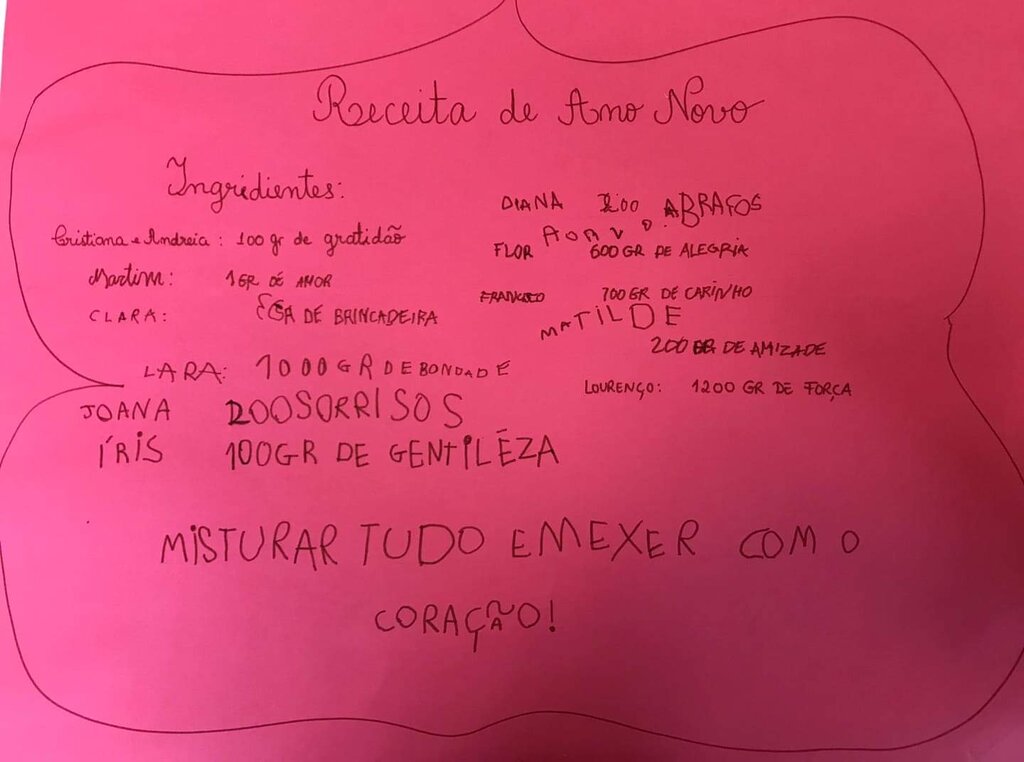 Receita de Ano Novo
Ingredientes:
Cristiana e Andreia : 100 gr de gratidão
Martim: 1 GR DE AMOR
CLARA: GR DE BRINCADEIRA
LARA: 1000 GR DE BONDADE
JOANA 200 SORRISOS
ÍRIS 100GR DE GENTILÉZA
DIANA 200 ABRAÇOS
FLOR 600 GR DE ALEGRIA
FRANCISCO 700 GR DE CARINHO
MATILDE
200 GR DE AMIZADE
LOURENÇO: 1200 GR DE FORÇA
MISTURAR TUDO E MEXER COM O
CORAÇÃO!